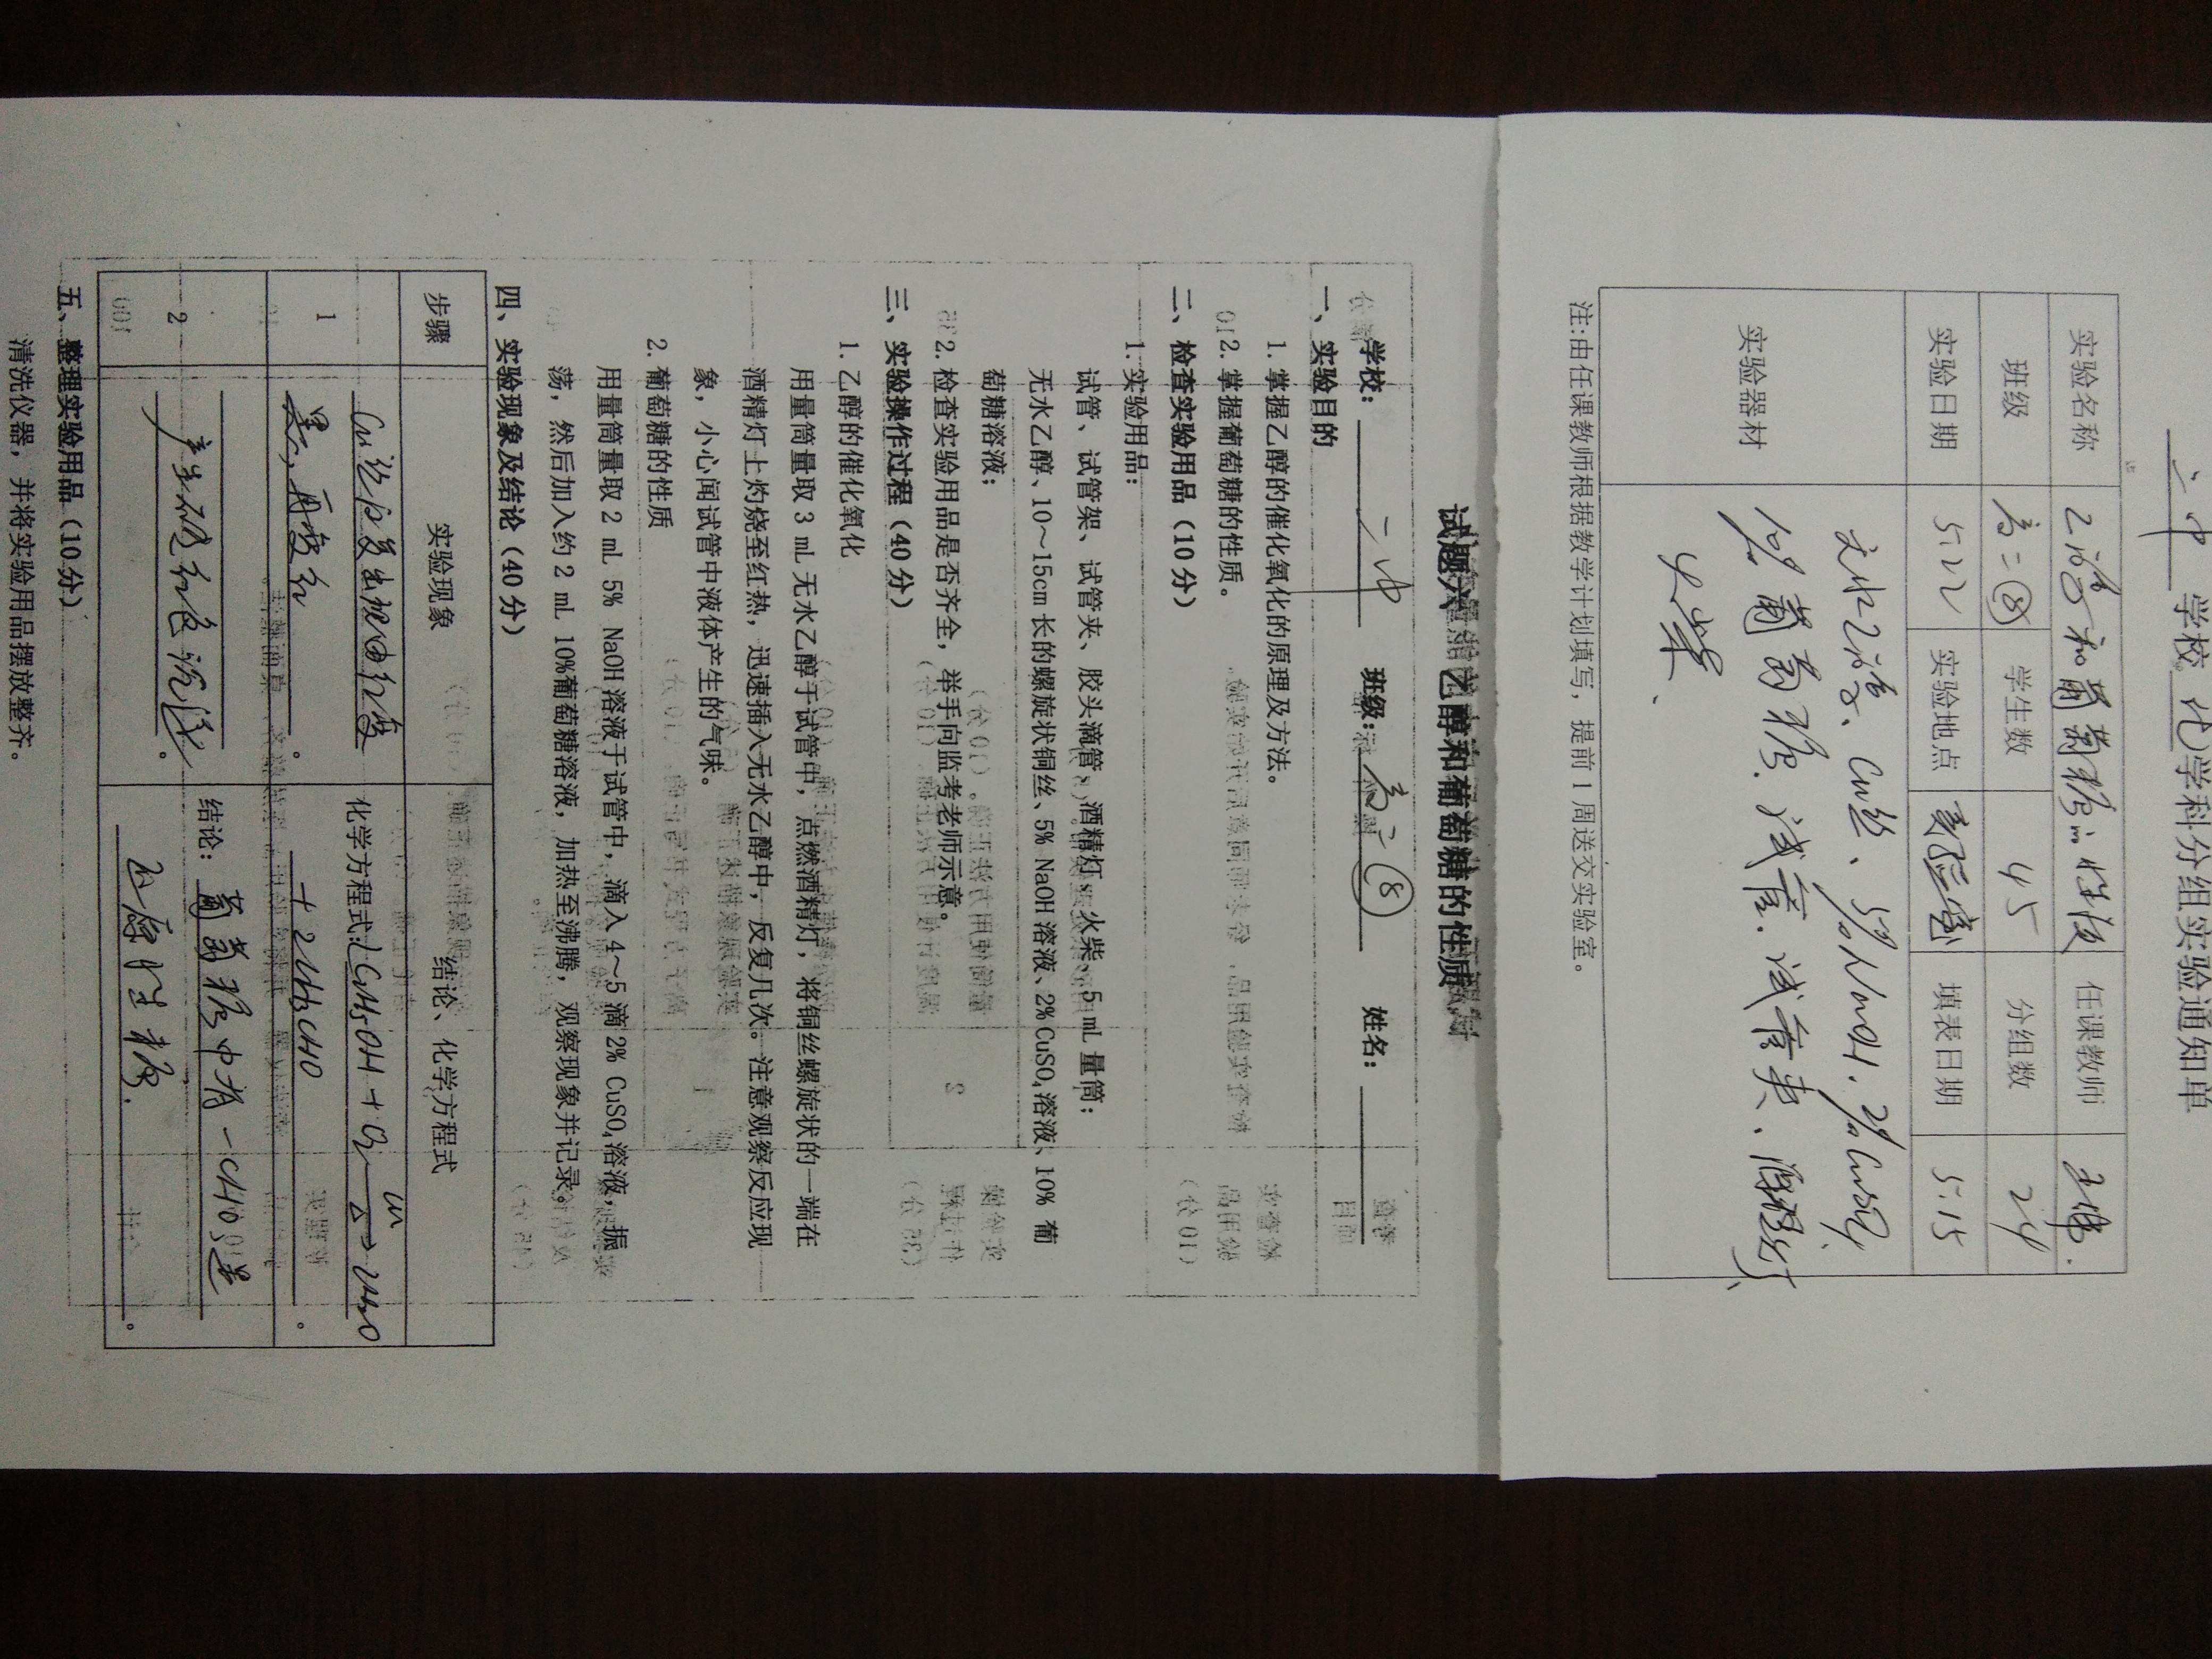 二中 学校 化 学科分组实验通知单
实验名称 乙醇和葡萄糖的性质 任课教师
班级 高二⑧ 学生数 45 分组数 24
实验日期 5.22 实验地点 实验室 填表日期 5.15
实验器材 无水乙醇、Cu丝、5%NaOH、2%CuSO4、
10%葡萄糖、试管、试管夹、酒精灯、
火柴、
注:由任课教师根据教学计划填写，提前1周送交实验室。
试题六 乙醇和葡萄糖的性质
学校：二中 班级：高二⑧ 姓名：
一、实验目的
1. 掌握乙醇的催化氧化的原理及方法。
2. 掌握葡萄糖的性质。
二、检查实验用品（10分）
1. 实验用品：
试管、试管架、试管夹、胶头滴管、酒精灯、火柴、5 mL 量筒；
无水乙醇、10～15cm 长的螺旋状铜丝、5% NaOH 溶液、2% CuSO₄溶液、10% 葡
萄糖溶液；
2. 检查实验用品是否齐全，举手向监考老师示意。
三、实验操作过程（40分）
1. 乙醇的催化氧化
用量筒量取 3 mL 无水乙醇于试管中，点燃酒精灯，将铜丝螺旋状的一端在
酒精灯上灼烧至红热，迅速插入无水乙醇中，反复几次。注意观察反应现
象，小心闻试管中液体产生的气味。
2. 葡萄糖的性质
用量筒量取 2 mL 5% NaOH 溶液于试管中，滴入 4～5 滴 2% CuSO₄溶液，振
荡，然后加入约 2 mL 10%葡萄糖溶液，加热至沸腾，观察现象并记录。
四、实验现象及结论（40分）
步骤 实验现象 结论、化学方程式
1 Cu丝由红变
黑，再变红。
化学方程式：2C2H5OH + O2 Cu △ → 2H2O
+ 2CH3CHO。
2 产生砖红色沉淀。
结论：葡萄糖中有—CHO，是
还原性糖。
五、整理实验用品（10分）
清洗仪器，并将实验用品摆放整齐。